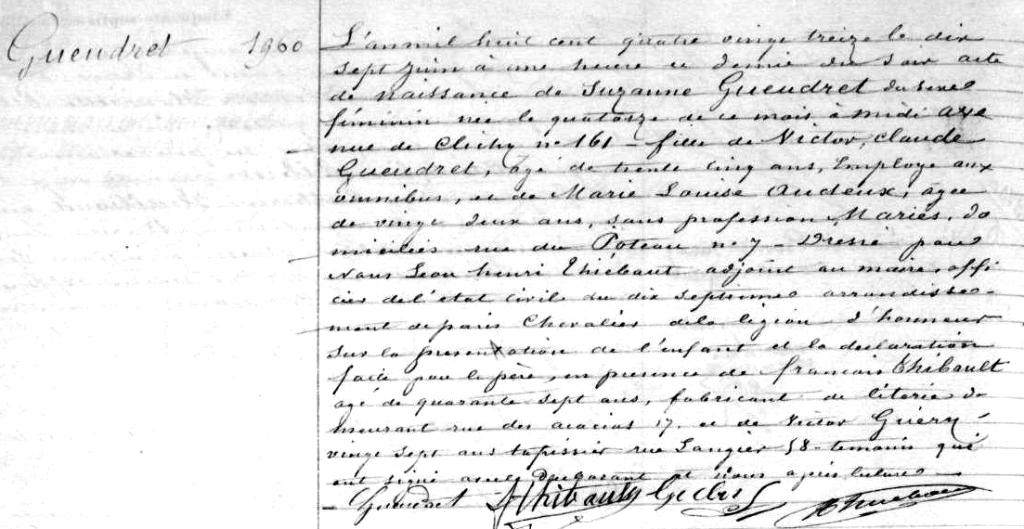 Gueudret 1960
L'an mil huit cent quatre vingt treize le dix
sept juin à une heure et demie du soir acte
de naissance de Suzanne Gueudret du sexe
féminin née le quatorze de ce mois à midi
rue de Clichy nº 161 - fille de Victor, Claude
Gueudret, agé de trente cinq ans, Employé aux
omnibus, et de Marie Louise Audeux, agée
de vingt deux ans, sans profession Mariés, do
miciliés rue du Poteau nº 7 - Dressé par
Nous Léon henri Thiébaut adjoint au maire, offi
cier de l'état civil du dix septième arrondisse-
ment de paris Chevalier de la légion d'honneur
sur la présentation de l'enfant et la déclaration
faite par le père, en présence de francois Thibault
agé de quarante sept ans, fabricant de literie de
meurant rue des acacias 17. et de Victor
vingt sept ans tapissier rue Laugier 58 - temoins qui
ont signé avec et nous après lecture -
Gueudret Thibault